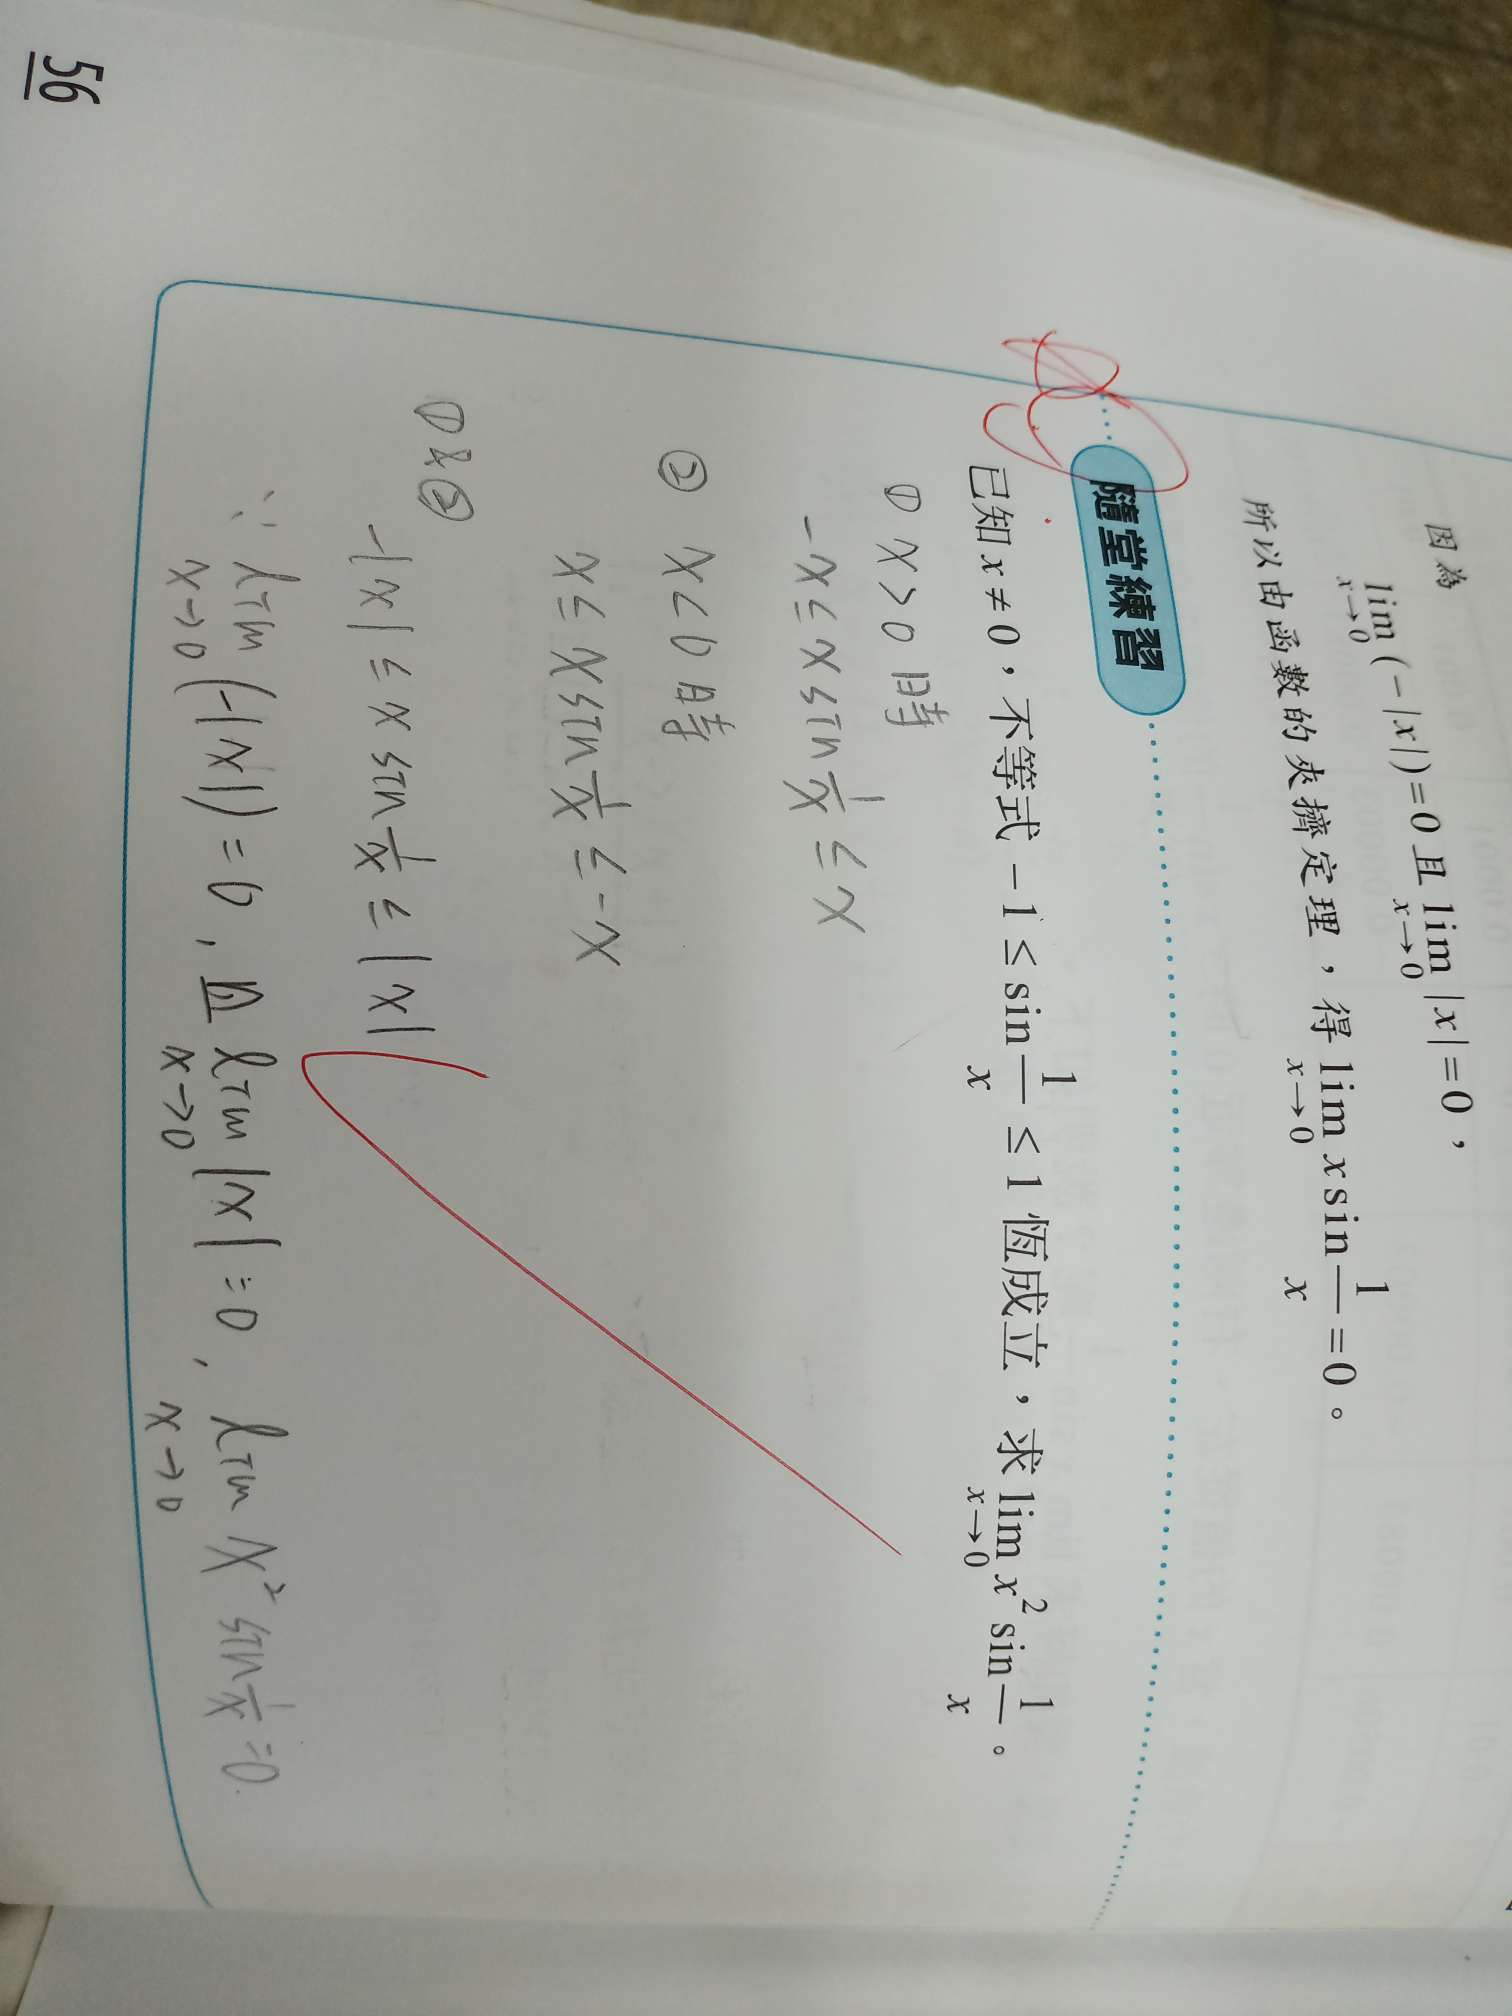 因為 lim x→0 (-|x|)=0 且 lim x→0 |x|=0，
所以由函數的夾擠定理，得 lim x→0 x sin 1/x =0。
隨堂練習
已知 x≠0，不等式 -1 ≤ sin 1/x ≤ 1 恆成立，求 lim x→0 x² sin 1/x。
① x>0 時
-x ≤ x sin 1/x ≤ x
② x<0 時
x ≤ x sin 1/x ≤ -x
①&②
-|x| ≤ x sin 1/x ≤ |x|
∵ lim x→0 (-|x|)=0, 且 lim x→0 |x|=0, lim x→0 x² sin 1/x =0
56